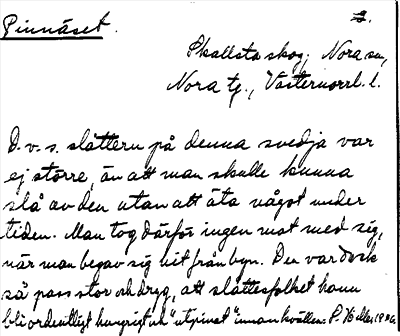 Pinnäset. 2.
Skallsta skog, Nora sn,
Nora tg., Västernorrl. l.
D. v. s. slåttern på denna svedja var
ej större, än att man skulle kunna
slå av den utan att äta något under
tiden. Man tog därför ingen mat med sig,
när man begav sig dit från byn. Den var dock
så pass stor och dryg, att slåttesfolket hann
bli ordentligt hungrigt och "utpinat" innan kvällen.